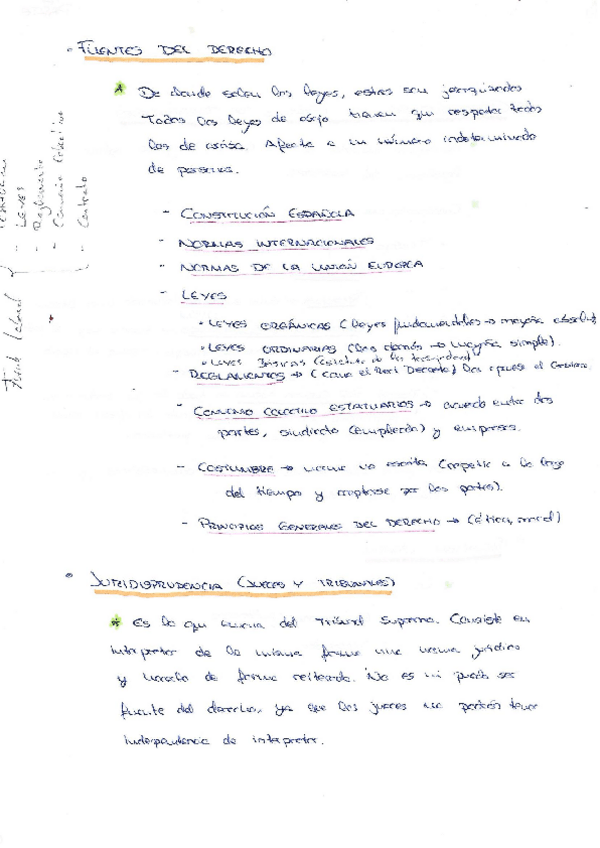 FUENTES DEL DERECHO
De donde salen las leyes, estas son jerarquizadas
Todas las leyes de abajo tienen que respetar todas
las de arriba. Afecta a un número indeterminado
de personas.
- CONSTITUCIÓN ESPAÑOLA
- NORMAS INTERNACIONALES
- NORMAS DE LA UNIÓN EUROPEA
- LEYES
• LEYES ORGÁNICAS (Leyes fundamentales → mayoría absolut
• LEYES ORDINARIAS (Las demás → mayoría simple).
• Leyes Básicas (estatuto de los trabajadores)
- REGLAMENTOS → (como el Real Decreto) Las el Gobierno.
- CONVENIO COLECTIVO ESTATUARIOS → acuerdo entre dos
partes, sindicato (empleador) y empresa.
- COSTUMBRE → norma no escrita (repetir a lo largo
del tiempo y por las partes).
- PRINCIPIOS GENERALES DEL DERECHO → (ética, moral)
JURIDISPRUDENCIA (JUECES Y TRIBUNALES)
Es lo que del Tribunal Supremo. Consiste en
interpretar de la misma forma una norma jurídica
y hacerlo de forma reiterada. No es ni puede ser
fuente del derecho, ya que los jueces no podrán tener
independencia de interpretar.
- LEYES
- Reglamento
- Convenio Colectivo
- Contrato
laboral